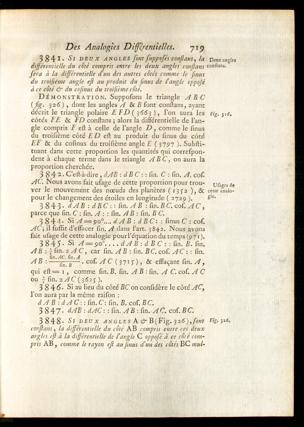 Des Analogies Différentielles. 719
3841. SI DEUX ANGLES sont supposés constans, la
différentielle du côté compris entre les deux angles constans
sera à la différentielle d'un des autres côtés comme le sinus
du troisième angle est au produit du sinus de l'angle opposé
à ce côté & du cosinus du troisième côté.
Deux angles
constans.
DÉMONSTRATION. Supposons le triangle ABC
(fig. 326), dont les angles A & B sont constans, ayant
décrit le triangle polaire EFD (3663), l'on aura les
côtés FE & FD constans; alors la différentielle de l'an-
gle compris F est à celle de l'angle D, comme le sinus
du troisième côté ED est au produit du sinus du côté
EF & du cosinus du troisième angle E (3797). Substi-
tuant dans cette proportion les quantités qui correspon-
dent à chaque terme dans le triangle ABC, on aura la
proportion cherchée.
Fig. 326.
3842. C'est-à-dire, dAB : dBC :: sin. C : sin. A. cos.
AC. Nous avons fait usage de cette proportion pour trou-
ver le mouvement des nœuds des planètes (1352), &
pour le changement des étoiles en longitude (2729).
Usages de
cette analo-
gie.
3843. dAB : dBC :: sin. AB : sin. BC. cos. AC,
parce que sin. C : sin. A :: sin. AB : sin. BC.
3844. Si A=90°... dAB : dBC :: sinus C : cos.
AC, il suffit d'effacer sin. A dans l'art. 3842. Nous avons
fait usage de cette analogie pour l'équation du temps (971).
3845. Si A=90°... dAB : dBC :: sin. B. sin.
AB : ½ sin. 2 AC, car sin. AB : sin. BC. cos. AC :: sin.
AB : sin. AC. sin. A / sin. B . cos. AC (3715), & effaçant sin. A,
qui est = 1, comme sin. B. sin. AB : sin. AC. cos. AC
ou ½ sin. 2 AC (3635).
3846. Si au lieu du côté BC on considère le côté AC,
l'on aura par la même raison :
dAB : dAC :: sin. C : sin. B. cos. BC.
3847. dAB : dAC :: sin. AB : sin. AC. cos. BC.
3848. SI DEUX ANGLES A & B (Fig. 326), sont
constans, la différentielle du côté AB compris entre ces deux
angles est à la différentielle de l'angle C opposé à ce côté com-
pris AB, comme le rayon est au sinus d'un des côtés BC mul-
Fig. 326.